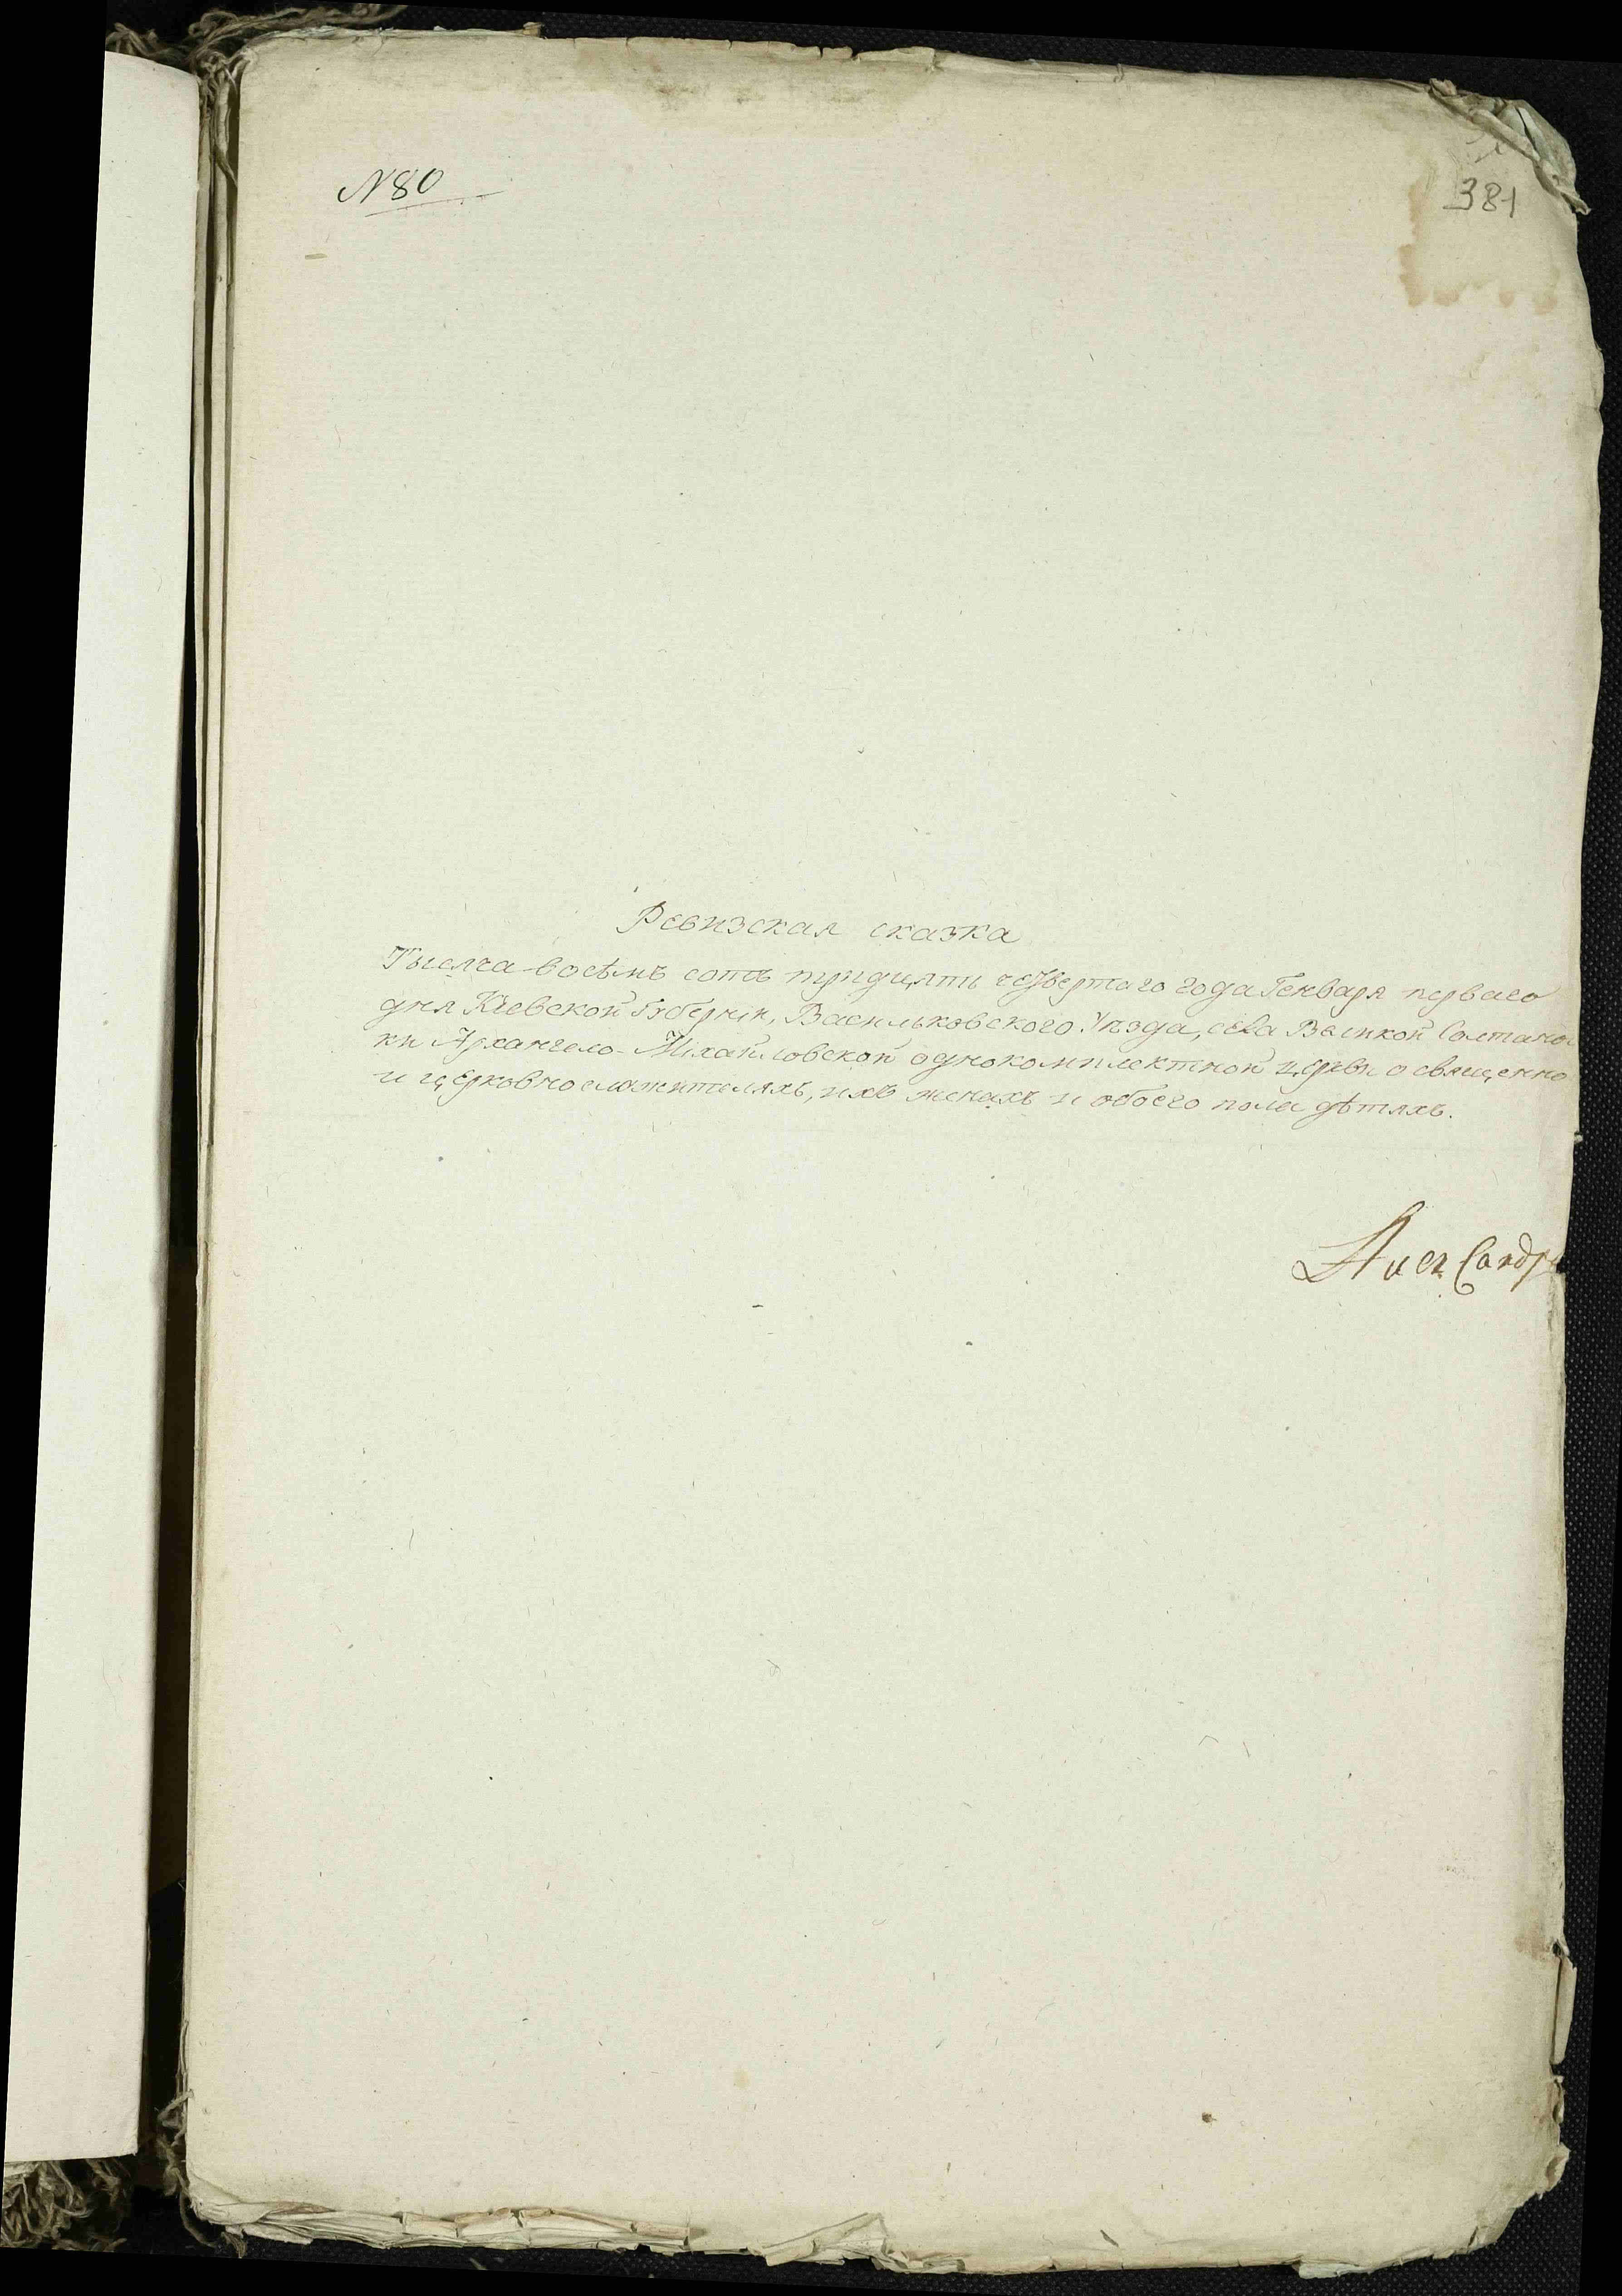 N 80
381
Ревизская сказка
Тысяча восѣмъ сотъ тридцять четвертаго года Генваря перваго
дня Кіевской Губерніи, Васильковского Уѣзда, села Великой Солтанов
ки Архангело-Михайловской однокомплектной церкви о священно
и церковнослужителяхъ, ихъ женахъ и обоего пола дѣтяхъ.